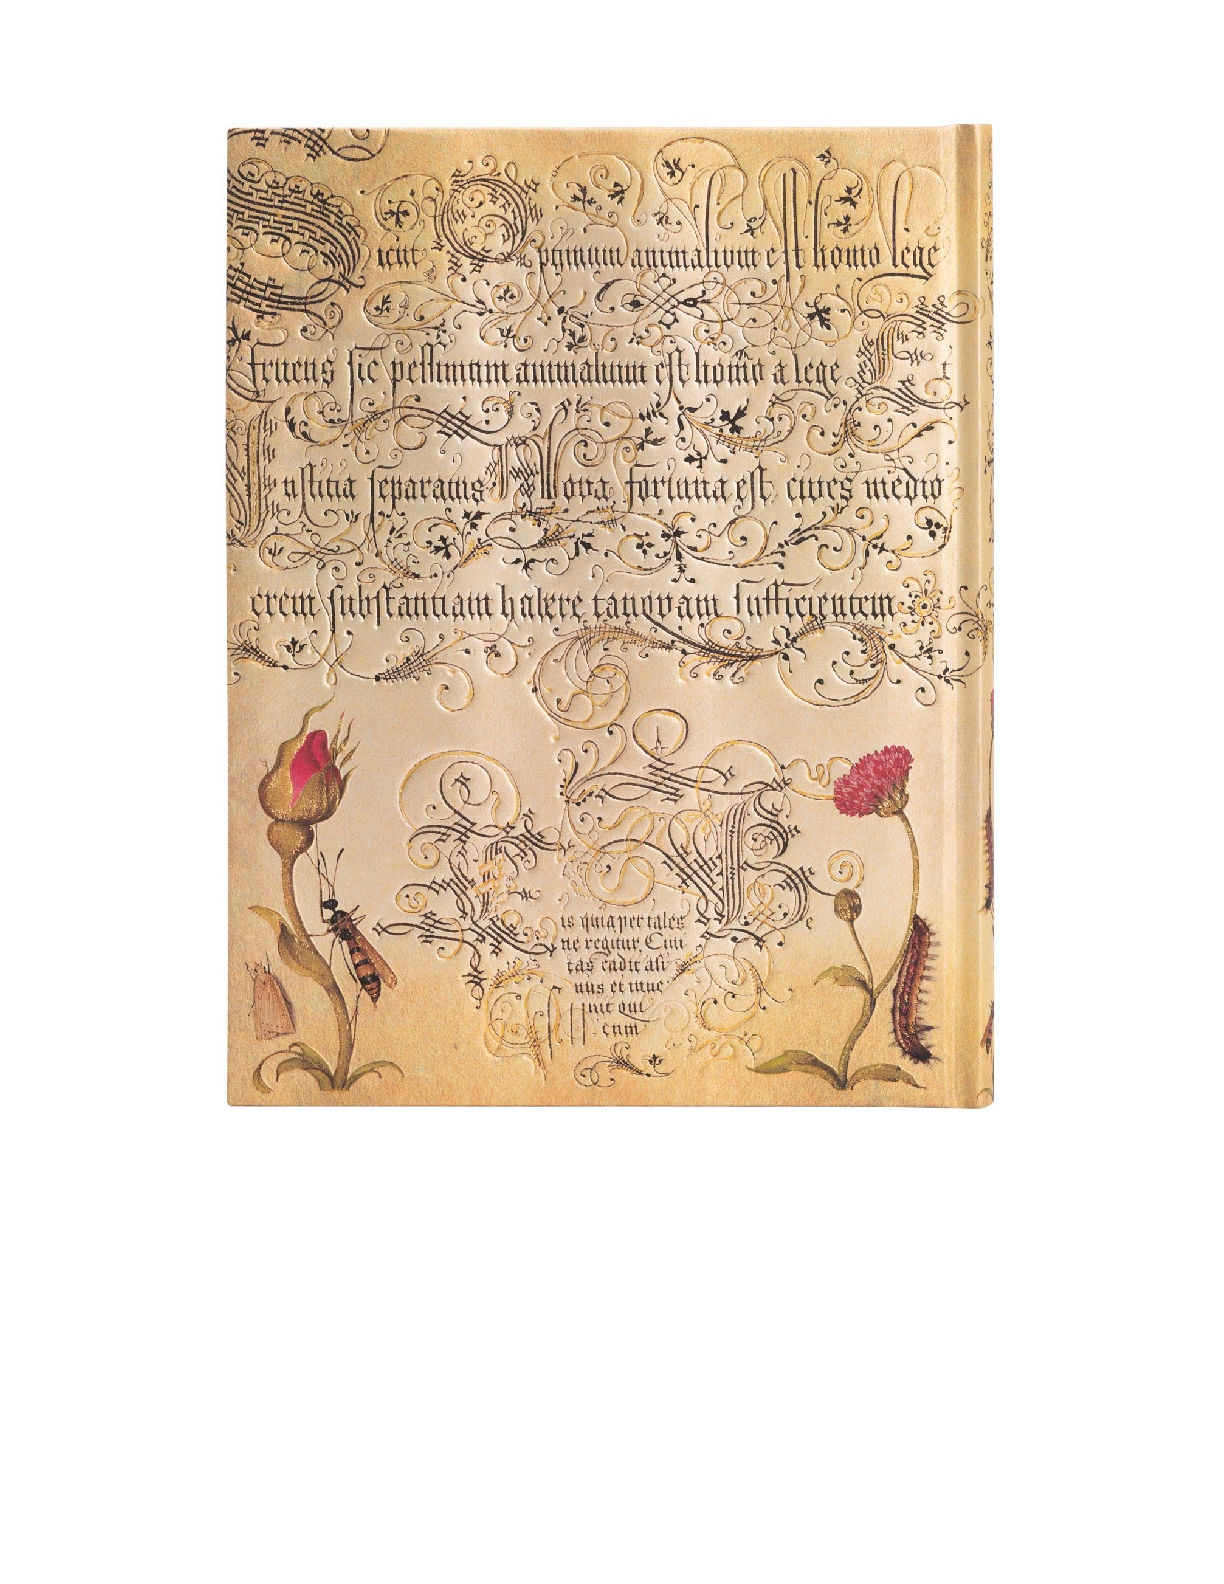 Sicut Optimum animalium est homo lege
fruens sic pessimum animalium est homo a lege Et
Iustitia separatus Bona fortuna est cives medio
crem substantiam habere tanquam sufficientem
is quia per tales
ne regitur Civi
tas cadit ali
nus et inve
nit
eum